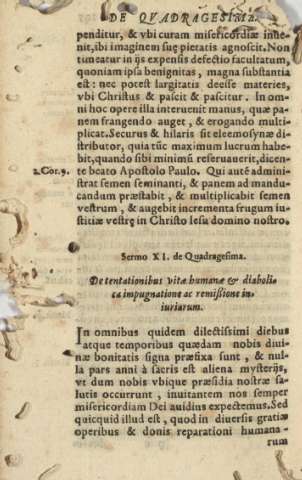 DE QVADRAGESIMA.
penditur, & vbi curam misericordiæ inue-
nit, ibi imaginem suę pietatis agnoscit. Non
timeatur in ijs expensis defectio facultatum,
quoniam ipsa benignitas, magna substantia
est: nec potest largitatis deesse materies,
vbi Christus & pascit & pascitur. In om-
ni hoc opere illa interuenit manus, quæ pa-
nem frangendo auget, & erogando multi-
plicat. Securus & hilaris sit eleemosynæ di-
stributor, quia tũc maximum lucrum habe-
bit, quando sibi minimũ reseruauerit, dicen-
2. Cor. 9. te beato Apostolo Paulo. Qui autẽ admini-
strat semen seminanti, & panem ad mandu-
candum præstabit, & multiplicabit semen
vestrum, & augebit incrementa frugum iu-
stitiæ vestrę in Christo Iesu domino nostro.
Sermo XI. de Quadragesima.
De tentationibus vitæ humanæ & diaboli-
ca impugnatione ac remissione in-
iuriarum.
In omnibus quidem dilectissimi diebus
atque temporibus quædam nobis diui-
næ bonitatis signa præfixa sunt, & nul-
la pars anni à sacris est aliena mysterijs,
vt dum nobis vbique præsidia nostræ sa-
lutis occurrunt, inuitantem nos semper
misericordiam Dei auidius expectemus. Sed
quicquid illud est, quod in diuersis gratiæ
operibus & donis reparationi humana-
rum